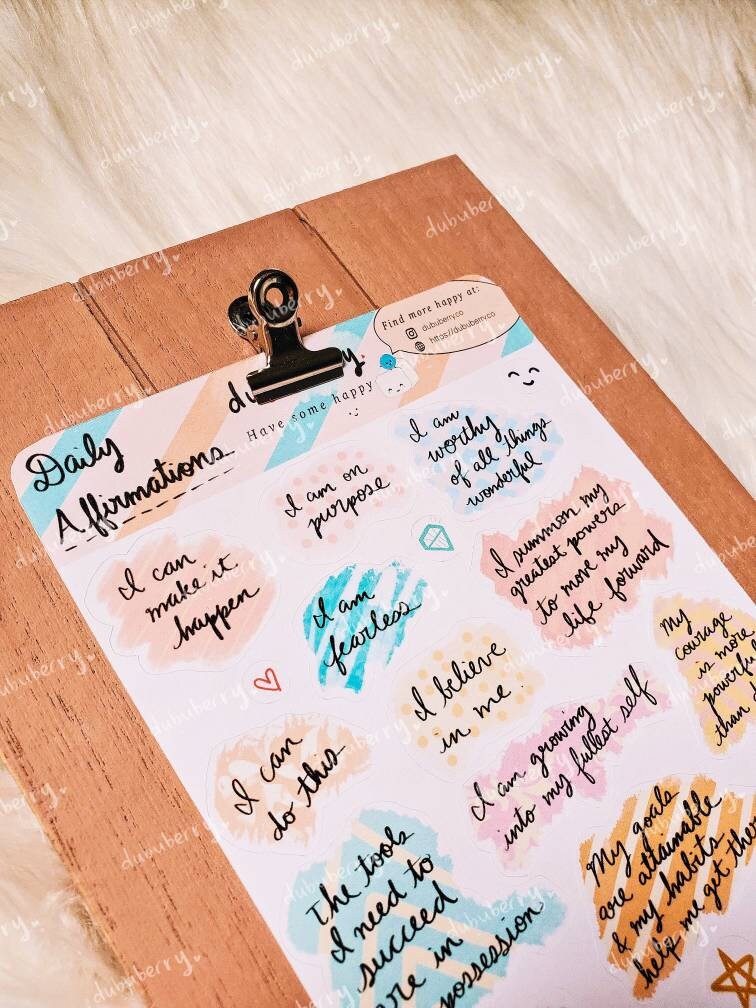 Find more happy at:
dububerryco
https://dububerry.co
Have some happy
Daily
Affirmations
I am
worthy
of all things
wonderful
I am on
purpose
I summon my
greatest powers
to move my
life forward
I can
make it
happen
I am
fearless
My
courage
is more
powerful
than
I believe
in me.
I am growing
into my fullest self
I can
do this
My goals
are attainable
& my habits
help me get
The tools
I need to
succeed
are in
possession
dububerry